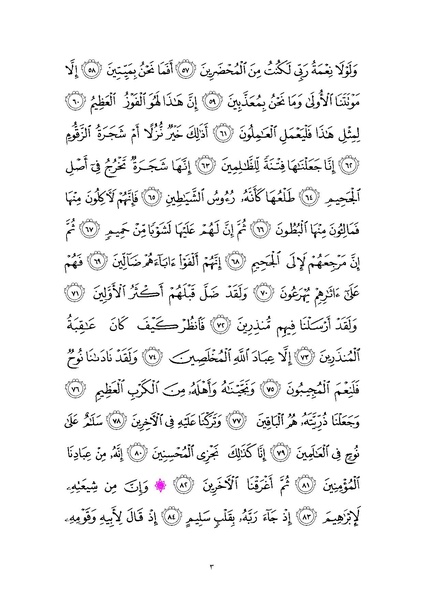 وَلَوْلَا نِعْمَةُ رَبِّي لَكُنتُ مِنَ الْمُحْضَرِينَ ٥٧ أَفَمَا نَحْنُ بِمَيِّتِينَ ٥٨ إِلَّا
مَوْتَتَنَا الْأُولَىٰ وَمَا نَحْنُ بِمُعَذَّبِينَ ٥٩ إِنَّ هَٰذَا لَهُوَ الْفَوْزُ الْعَظِيمُ ٦٠
لِمِثْلِ هَٰذَا فَلْيَعْمَلِ الْعَامِلُونَ ٦١ أَذَٰلِكَ خَيْرٌ نُّزُلًا أَمْ شَجَرَةُ الزَّقُّومِ
٦٢ إِنَّا جَعَلْنَاهَا فِتْنَةً لِّلظَّالِمِينَ ٦٣ إِنَّهَا شَجَرَةٌ تَخْرُجُ فِي أَصْلِ
الْجَحِيمِ ٦٤ طَلْعُهَا كَأَنَّهُ رُءُوسُ الشَّيَاطِينِ ٦٥ فَإِنَّهُمْ لَآكِلُونَ مِنْهَا
فَمَالِئُونَ مِنْهَا الْبُطُونَ ٦٦ ثُمَّ إِنَّ لَهُمْ عَلَيْهَا لَشَوْبًا مِّنْ حَمِيمٍ ٦٧ ثُمَّ
إِنَّ مَرْجِعَهُمْ لَإِلَى الْجَحِيمِ ٦٨ إِنَّهُمْ أَلْفَوْا ءَابَاءَهُمْ ضَالِّينَ ٦٩ فَهُمْ
عَلَىٰ ءَاثَارِهِمْ يُهْرَعُونَ ٧٠ وَلَقَدْ ضَلَّ قَبْلَهُمْ أَكْثَرُ الْأَوَّلِينَ ٧١
وَلَقَدْ أَرْسَلْنَا فِيهِم مُّنذِرِينَ ٧٢ فَانظُرْ كَيْفَ كَانَ عَاقِبَةُ
الْمُنذَرِينَ ٧٣ إِلَّا عِبَادَ اللَّهِ الْمُخْلَصِينَ ٧٤ وَلَقَدْ نَادَانَا نُوحٌ
فَلَنِعْمَ الْمُجِيبُونَ ٧٥ وَنَجَّيْنَاهُ وَأَهْلَهُ مِنَ الْكَرْبِ الْعَظِيمِ ٧٦
وَجَعَلْنَا ذُرِّيَّتَهُ هُمُ الْبَاقِينَ ٧٧ وَتَرَكْنَا عَلَيْهِ فِي الْآخِرِينَ ٧٨ سَلَامٌ عَلَىٰ
نُوحٍ فِي الْعَالَمِينَ ٧٩ إِنَّا كَذَٰلِكَ نَجْزِي الْمُحْسِنِينَ ٨٠ إِنَّهُ مِنْ عِبَادِنَا
الْمُؤْمِنِينَ ٨١ ثُمَّ أَغْرَقْنَا الْآخَرِينَ ٨٢ وَإِنَّ مِن شِيعَتِهِ
لَإِبْرَاهِيمَ ٨٣ إِذْ جَاءَ رَبَّهُ بِقَلْبٍ سَلِيمٍ ٨٤ إِذْ قَالَ لِأَبِيهِ وَقَوْمِهِ
٣